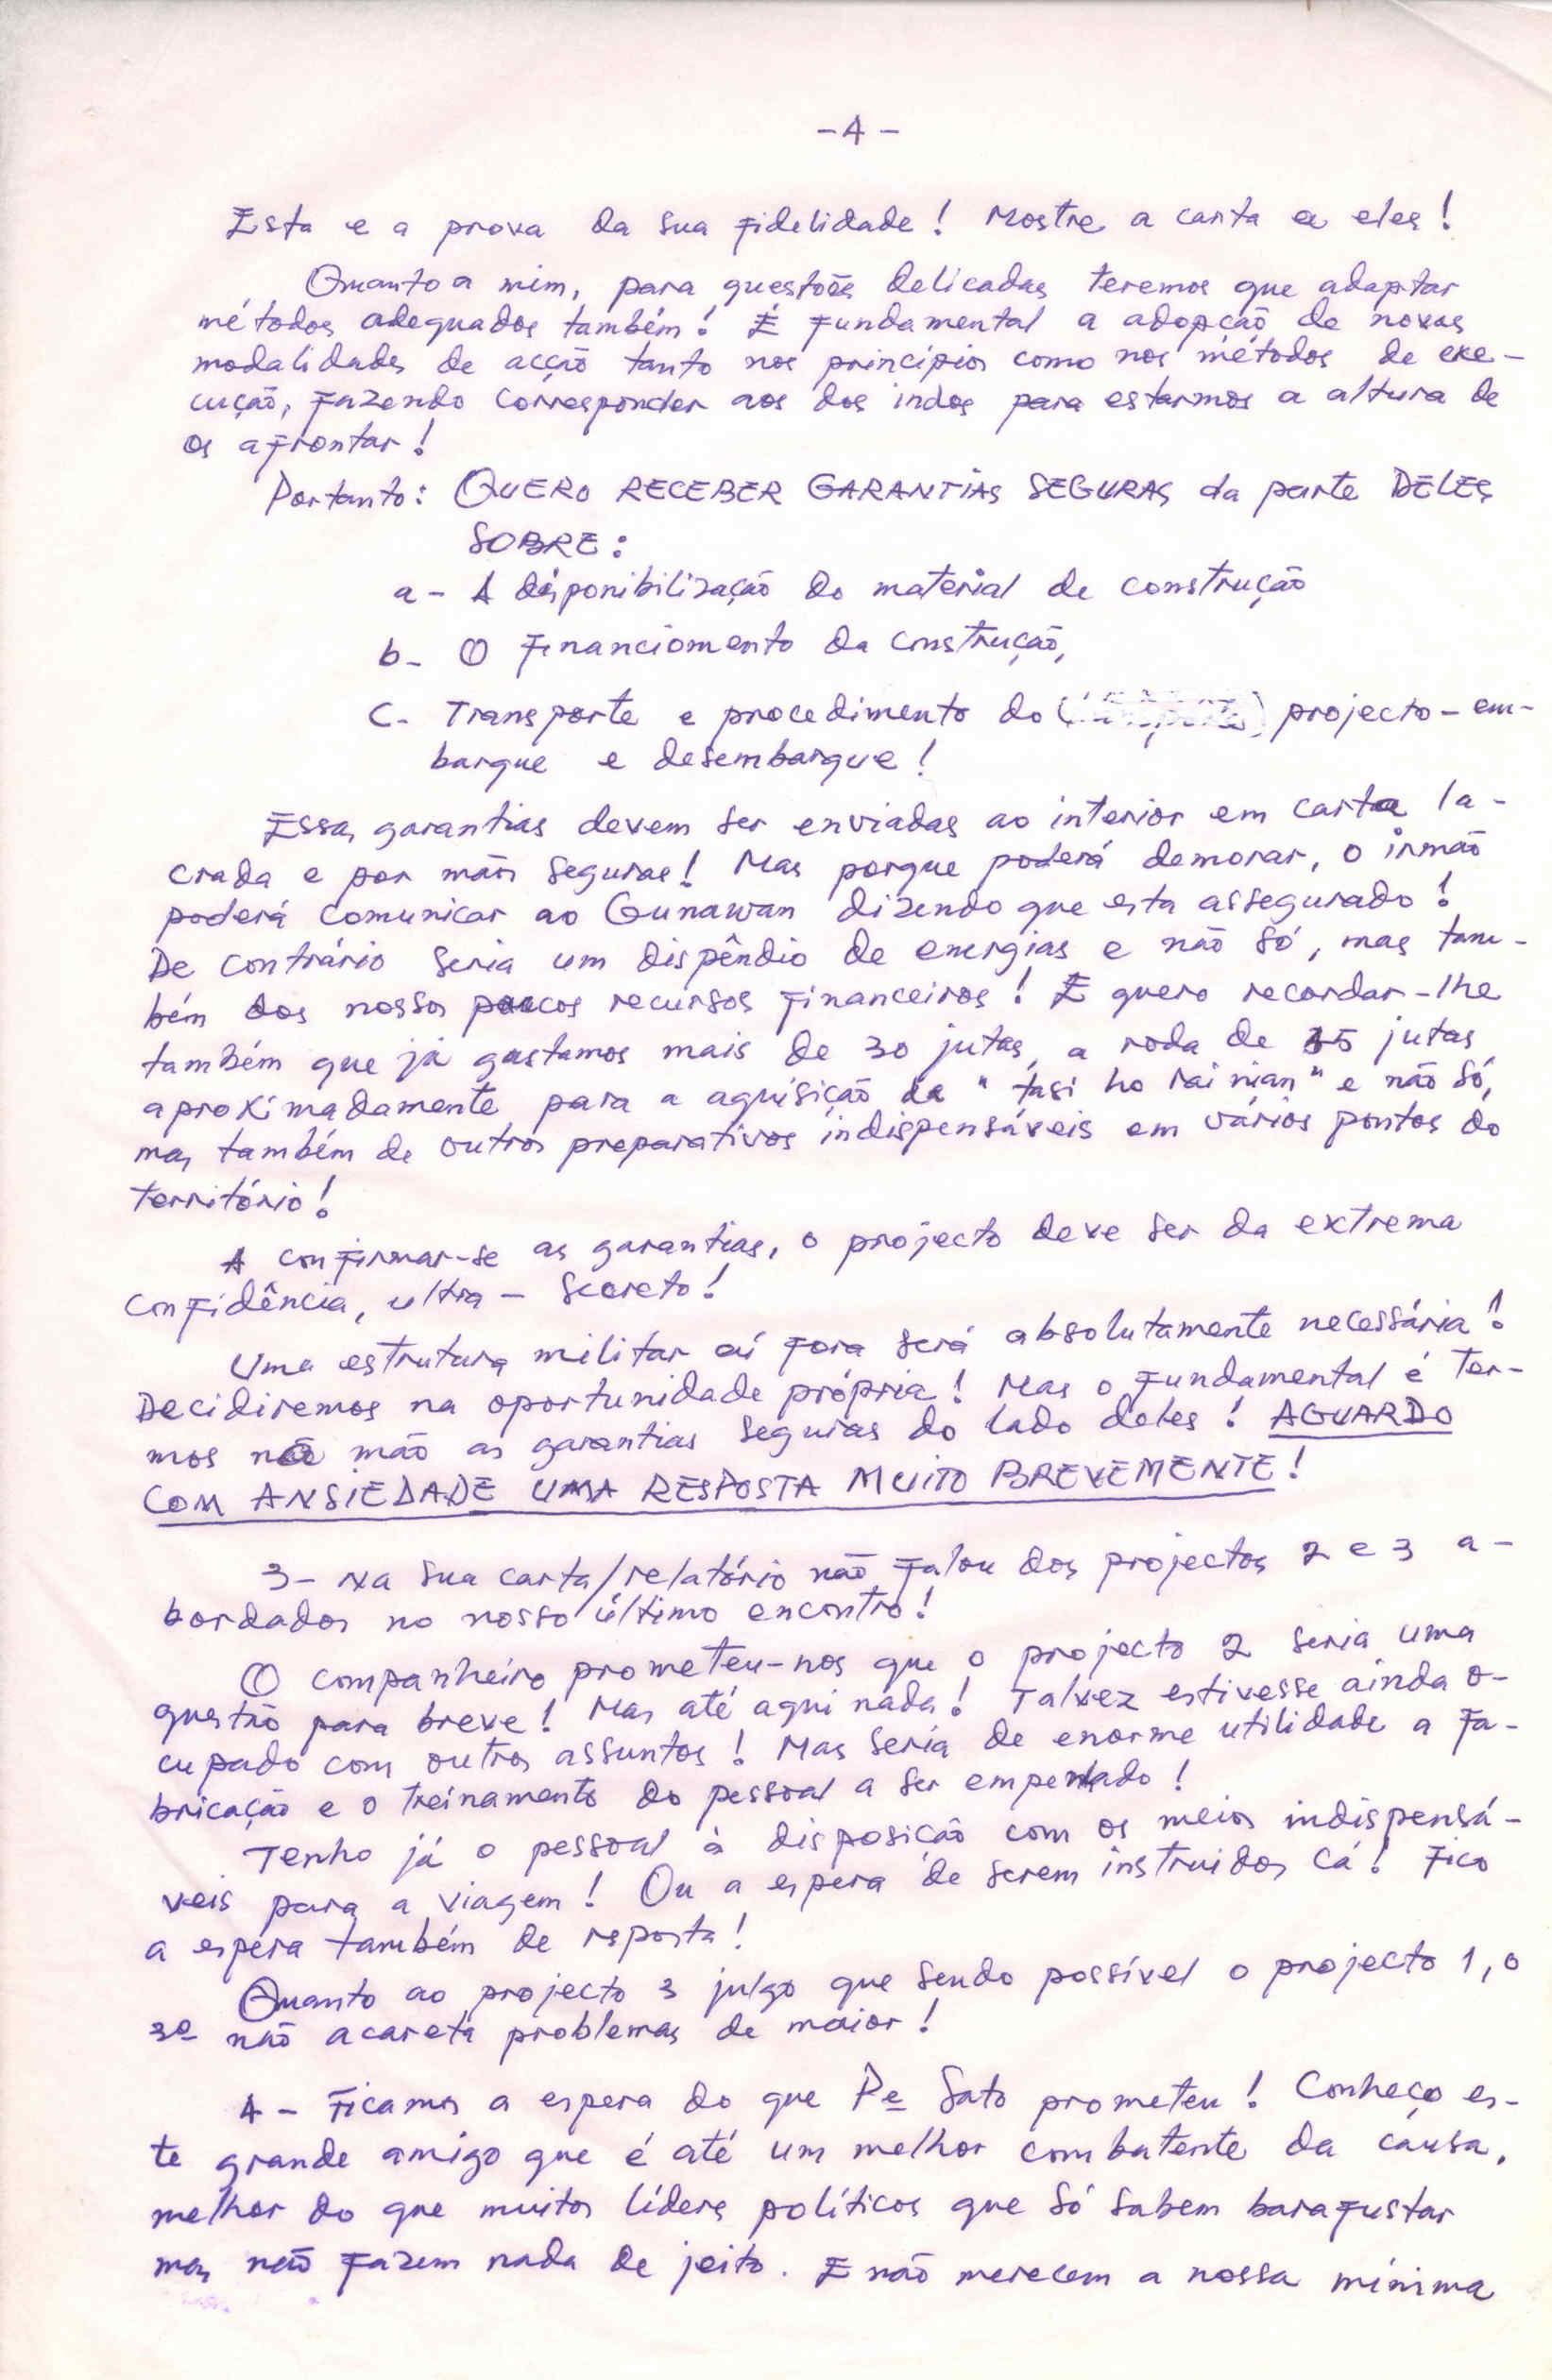 -4-
Esta e a prova da sua fidelidade! Mostre a carta a eles!
Quanto a mim, para questões delicadas teremos que adaptar
métodos adequados também! É fundamental a adopção de novas
modalidades de acção tanto nos princípios como nos métodos de exe-
cução, fazendo corresponder aos dos indos para estarmos a altura de
os afrontar!
Portanto: QUERO RECEBER GARANTIAS SEGURAS da parte DELES
SOBRE:
a - A disponibilização do material de construção
b - O financiamento da construção,
c - Transporte e procedimento do projecto - em-
barque e desembarque!
Essas garantias devem ser enviadas ao interior em carta la-
crada e por mãos seguras! Mas porque poderá demorar, o irmão
poderá comunicar ao Gunawan dizendo que esta assegurado!
De contrário seria um dispêndio de energias e não só, mas tam-
bém dos nossos poucos recursos financeiros! E quero recordar-lhe
também que já gastamos mais de 30 jutas, a roda de 35 jutas
aproximadamente para a aquisição da "tasi ho rai nian" e não só,
mas também de outros preparativos indispensáveis em vários pontos do
território!
A confirmar-se as garantias, o projecto deve ser da extrema
confidência, ultra - secreto!
Uma estrutura militar aí fora será absolutamente necessária!
Decidiremos na oportunidade própria! Mas o fundamental é ter-
mos na mão as garantias seguras do lado deles! AGUARDO
COM ANSIEDADE UMA RESPOSTA MUITO BREVEMENTE!
3 - Na sua carta/relatório não falou dos projectos 2 e 3 a-
bordados no nosso último encontro!
O companheiro prometeu-nos que o projecto 2 seria uma
questão para breve! Mas até aqui nada! Talvez estivesse ainda o-
cupado com outros assuntos! Mas seria de enorme utilidade a fa-
bricação e o treinamento do pessoal a ser empenhado!
Tenho já o pessoal à disposição com os meios indispensá-
veis para a viagem! Ou a espera de serem instruidos cá! Fico
a espera também de resposta!
Quanto ao projecto 3 julgo que sendo possível o projecto 1, o
3º não acareta problemas de maior!
4 - Ficamos a espera do que Pe Sato prometeu! Conheço es-
te grande amigo que é até um melhor combatente da causa,
melhor do que muitos líderes políticos que só sabem barafustar
mas não fazem nada de jeito. E não merecem a nossa mínima